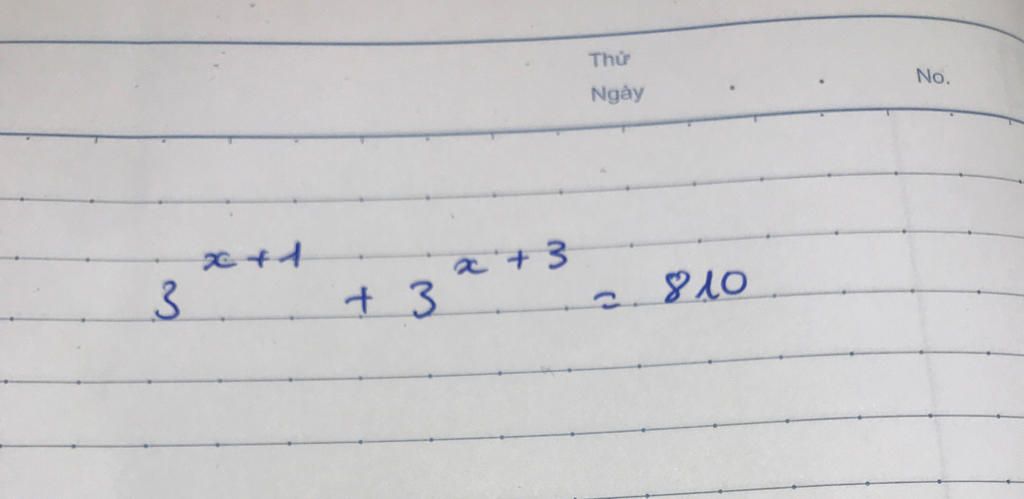 Thứ
Ngày . . No.
3^{x+1} + 3^{x+3} = 810